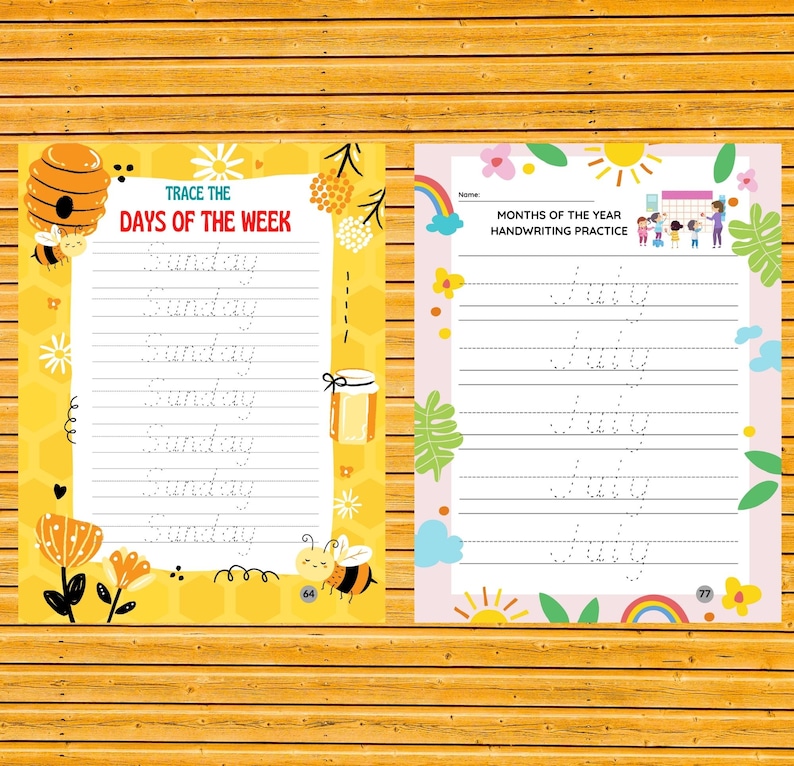 TRACE THE
DAYS OF THE WEEK
Sunday
Sunday
Sunday
Sunday
Sunday
Sunday
Sunday
64
Name:
MONTHS OF THE YEAR
HANDWRITING PRACTICE
July
July
July
July
July
77